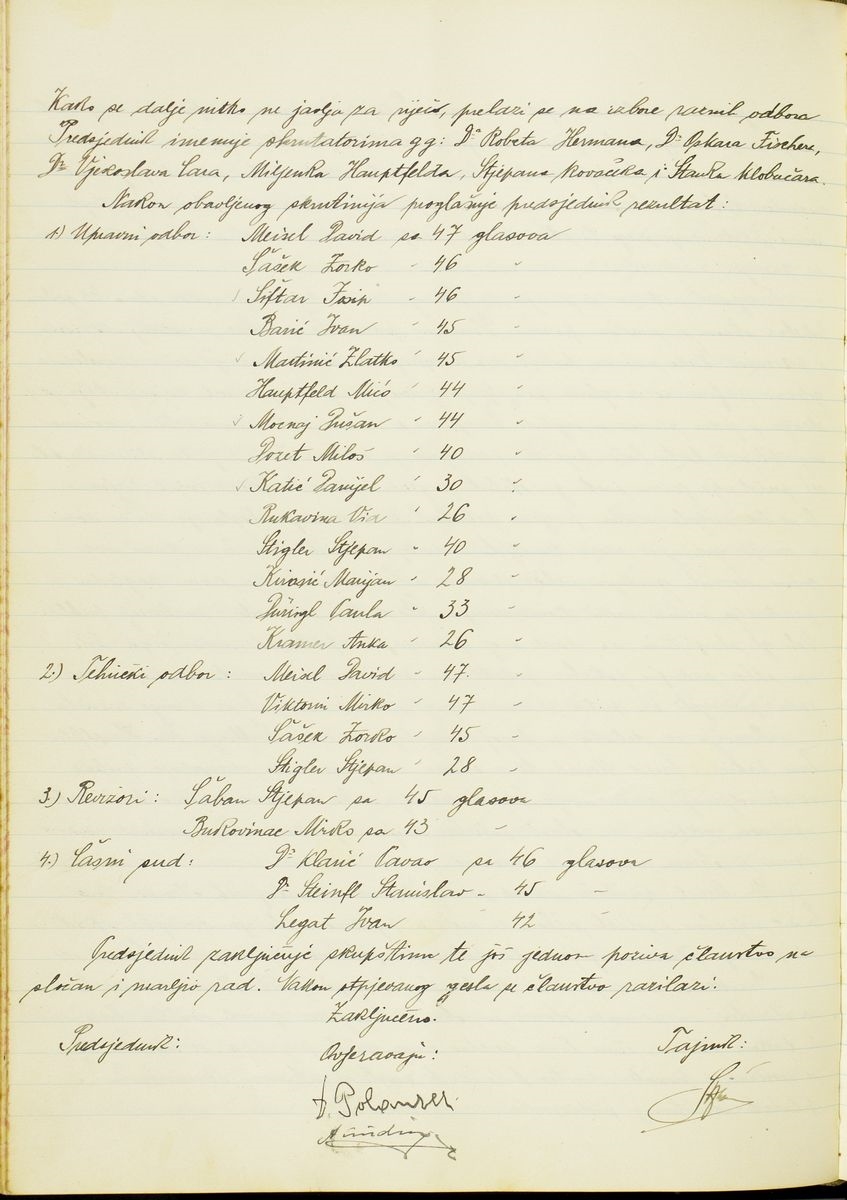 Kako se dalje nitko ne javlja za riječ, prelazi se na izbore raznih odbora
Predsjednik imenuje skrutatorima gg: Dr Roberta Hermana, Dr Oskara Fischera,
Dr Vjekoslava Cara, Miljenka Hauptfelda, Stjepana Kovačeka i Stanka Klobučara.
Nakon obavljenog skrutinija proglašuje predsjednik rezultat:
1.) Upravni odbor: Meisel David sa 47 glasova
Šašek Zorko " 46 "
Šiftar Josip " 46 "
Barić Ivan " 45 "
Martinić Zlatko " 45 "
Hauptfeld Mićo " 44 "
Mocnaj Dušan " 44 "
Dozet Miloš " 40 "
Katić Danijel " 30 "
Rukavina Via " 26 "
Stigler Stjepan " 40 "
Marijan " 28 "
Paula " 33 "
Kramer Anka " 26 "
2.) Tehnički odbor: Meisel David " 47. "
Viktorin Mirko " 47 "
Šašek Zorko " 45 "
Stigler Stjepan " 28 "
3.) Revizori: Šaban Stjepan sa 45 glasova
Bukovinac Mirko sa 43 "
4.) Časni sud: Dr Klarić Pavao sa 46 glasova
Dr Steinfl Stanislav " 45 "
Legat Ivan " 42 "
Predsjednik zaključuje skupštinu te još jednom poziva članstvo na
složan i marljiv rad. Nakon otpjevanog gesla se članstvo razilazi.
Zaključeno.
Predsjednik: Ovjeravaju: Tajnik: